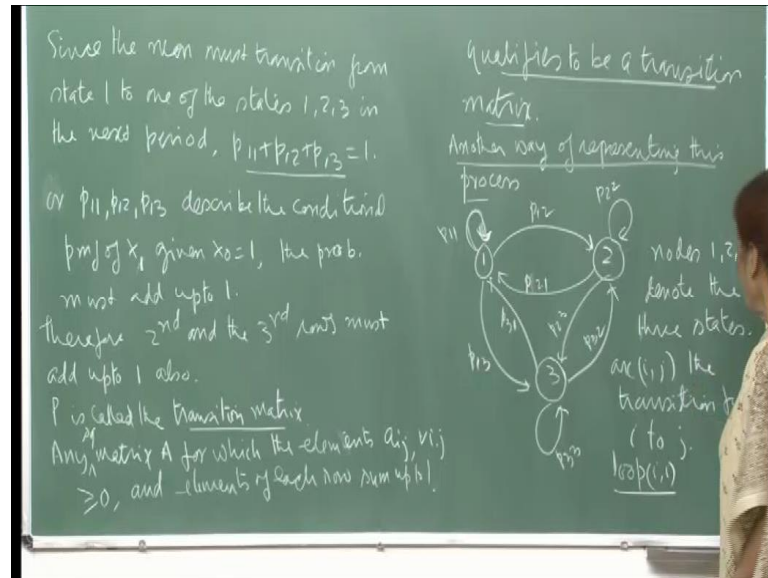 Since the men must transition from
state 1 to one of the states 1, 2, 3 in
the next period, p11+p12+p13=1.
or p11, p12, p13 describe the conditional
pmf of X1 given X0=1, the prob.
must add upto 1.
therefore 2nd and the 3rd rows must
add upto 1 also.
P is called the transition matrix
Any sq matrix A for which the elements aij, ∀i,j
≥0, and elements of each row sum upto 1
qualifies to be a transition
matrix.
Another way of representing this
process
p11
p12
p22
1
2
p21
p13
p31
p23
p32
3
p33
nodes 1, 2,
denote the
three states.
arc (i,j) the
transition
i to j.
loop (i,i)